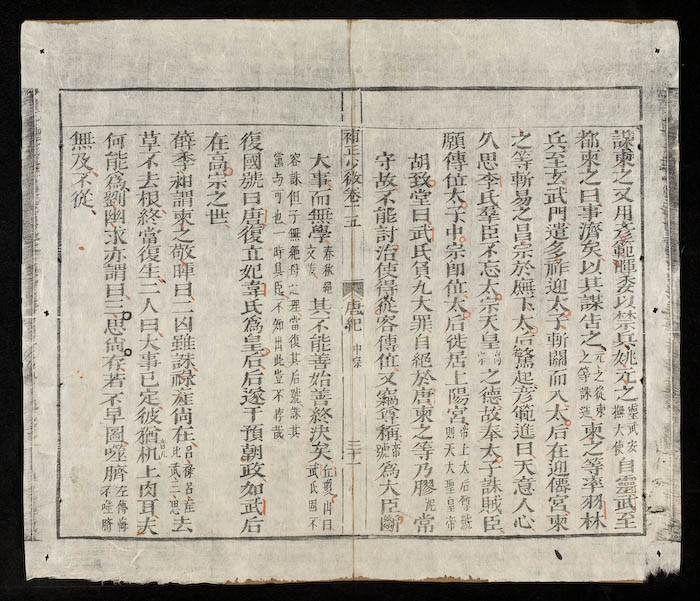 謀柬之又用彥範暉委以禁兵姚元之靈武安撫大使自靈武至
都柬之曰事濟矣以其謀告之元之從柬之等誅逆柬之等率羽林
兵至玄武門遣多祚迎太子斬關而入太后在迎僊宮柬
之等斬易之昌宗於廡下太后驚起彥範進曰天意人心
久思李氏羣臣不忘太宗天皇高宗之德故奉太子誅賊臣
願傳位太子中宗即位太后徙居上陽宮帝上太后尊號則天大聖皇帝
胡致堂曰武氏負九大罪自絕於唐柬之等乃膠泥常
守故不能討治使得從容傳位又竊尊稱帝號爲大臣斷
大事而無學春秋絕文姜其不能善始善終決矣丘瓊山曰武氏固不
容誅但子無絕母之理當復其后號誅其黨与可也一時具臣不知出此豈不誖哉
復國號曰唐復立妃韋氏爲皇后后遂干預朝政如武后
在高宗之世
薛季昶謂柬之敬暉曰二凶雖誅祿産尚在呂祿呂産比武三思去
草不去根終當復生二人曰大事已定彼猶机上肉耳夫
何能爲劉幽求亦謂曰三思尚存若不早圖噬臍左傳悔不噬臍
無及不從
補正少微卷二五
唐紀 中宗
二十一